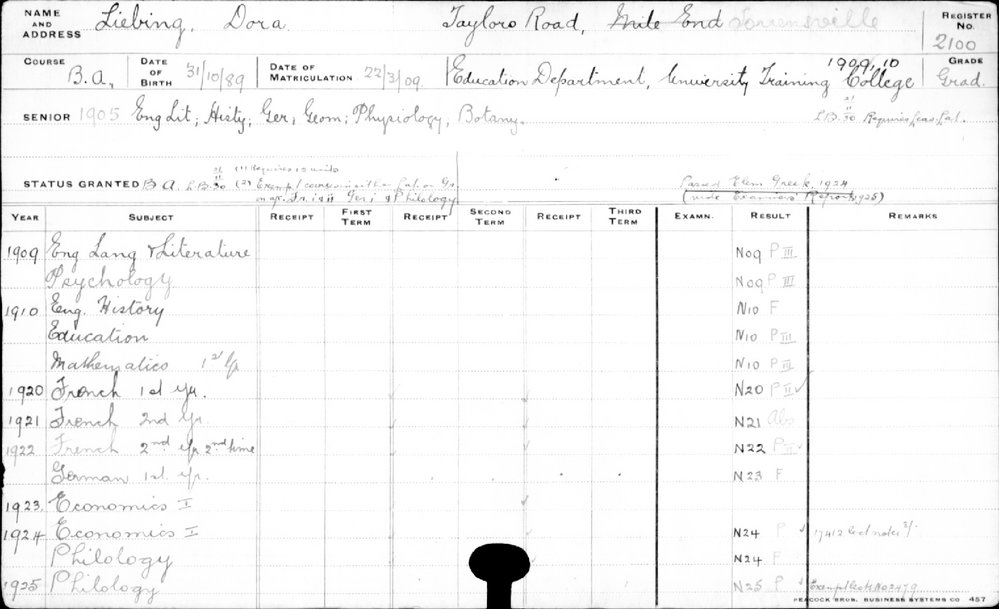 NAME AND ADDRESS Liebing, Dora Taylors Road, Mile End Torrensville REGISTER No. 2100
COURSE B.A. DATE OF BIRTH 31/10/89 DATE OF MATRICULATION 22/3/09 Education Department, University Training College 1909, 10 GRADE Grad.
SENIOR 1905 Eng Lit; Histy; Ger; Geom; Physiology; Botany. Requires
(1) Requires 10 units
STATUS GRANTED B A. (2) Passed Elem Greek. 1924
Ger; & Philology (vide Examiners' Report 1925)
YEAR SUBJECT RECEIPT FIRST TERM RECEIPT SECOND TERM RECEIPT THIRD TERM EXAMN. RESULT REMARKS
1909 Eng Lang & Literature N09 P III
Psychology N09 P III
1910 Eng. History N10 F
Education N10 P III
Mathematics 1st yr N10 P III
1920 French 1st yr. N20 P II ✓
1921 French 2nd yr. ✓ ✓ N21 Abs
1922 French 2nd yr 2nd time ✓ N22 P II ✓
German 1st yr. N23 F
1923. Economics I ✓
1924 Economics I ✓ N24 P ✓ 17412
Philology ✓ N24 F
1925 Philology N25 P ✓
PEACOCK BROS. BUSINESS SYSTEMS CO 457